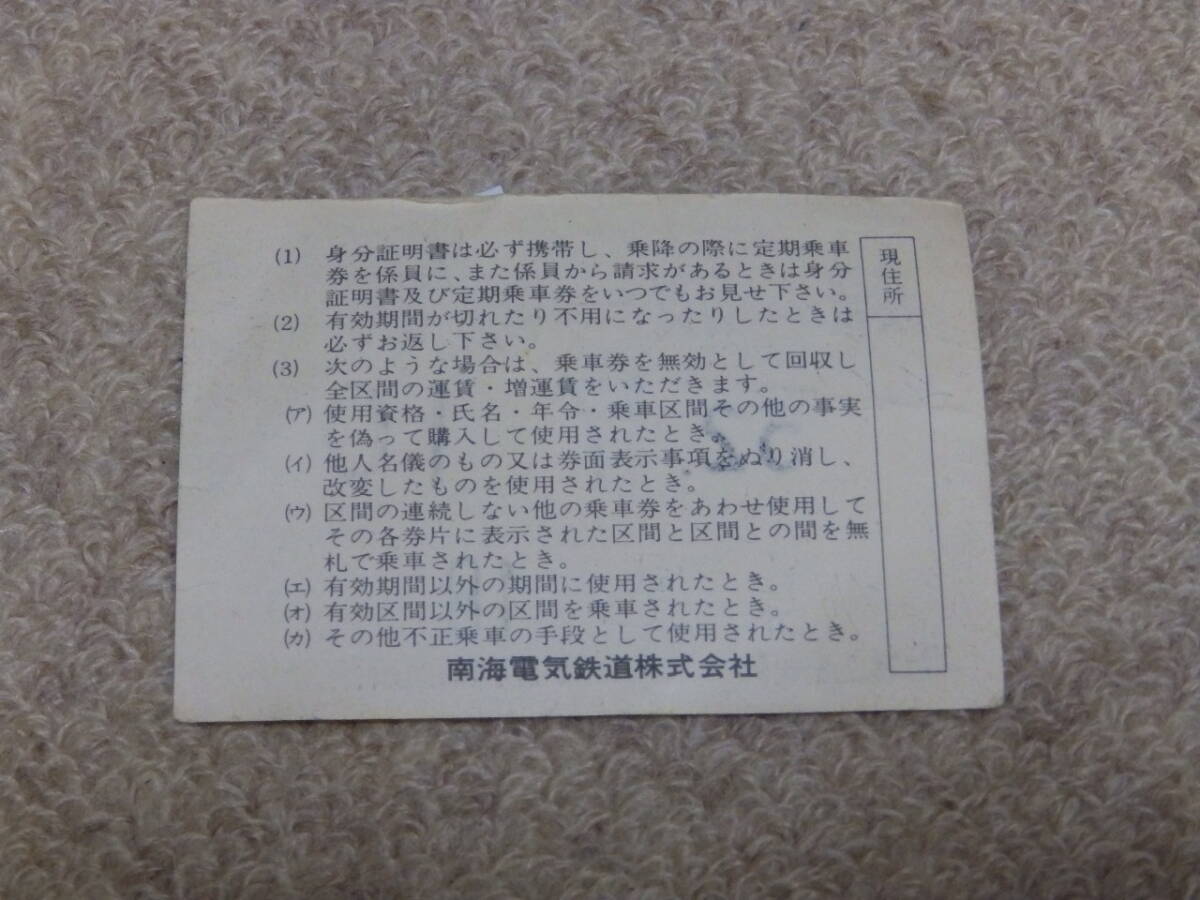 (1) 身分証明書は必ず携帯し、乗降の際に定期乗車
券を係員に、また係員から請求があるときは身分
証明書及び定期乗車券をいつでもお見せ下さい。
(2) 有効期間が切れたり不用になったりしたときは
必ずお返し下さい。
(3) 次のような場合は、乗車券を無効として回収し
全区間の運賃・増運賃をいただきます。
(ア) 使用資格・氏名・年令・乗車区間その他の事実
を偽って購入して使用されたとき。
(イ) 他人名儀のもの又は券面表示事項をぬり消し、
改変したものを使用されたとき。
(ウ) 区間の連続しない他の乗車券をあわせ使用して
その各券片に表示された区間と区間との間を無
札で乗車されたとき。
(エ) 有効期間以外の期間に使用されたとき。
(オ) 有効区間以外の区間を乗車されたとき。
(カ) その他不正乗車の手段として使用されたとき。
南海電気鉄道株式会社
現住所